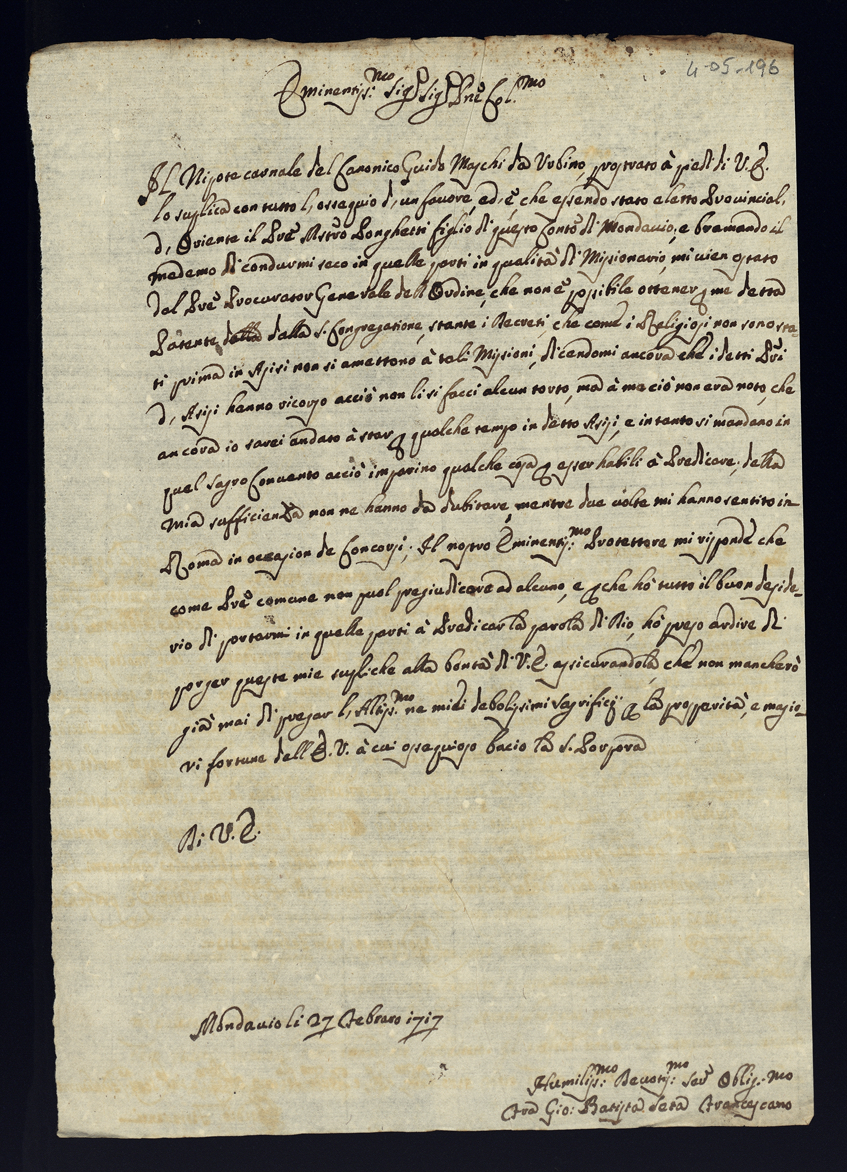 4-05-196
Eminentis:mo Sigr Sigr Pne Col.mo
Il Nipote carnale del Canonico Guido Maschi da Urbino, prostrato à piedi di V.E.
lo suplica con tutto l, ossequio d, un favore, ed, è che essendo stato eletto Provincial,
d, Oriente il Pre Mstro Longhetti figlio di questo Conto di Mondavio, e bramando il
medemo di condurmi seco in quelle parti in qualità di Missionario, mi vien ostato
dal Pre Procurator Generale dell Ordine, che non è possibile ottener p me detta
Patente dalla s. Congregatione, stante i Decreti che come i Religiosi non sono sta-
ti prima in Asisi non si amettono à tali Missioni, dicendomi ancora che i detti Pri
d, Asisi hanno ricorso acciò non li si facci alcun torto, ma à me ciò non era noto, che
ancora io sarei andato à star p qualche tempo in detto Asisi, e intanto si mandano in
quel sagro Convento acciò imparino qualche cosa p esser habili à Predicare; della
mia sufficienza non ne hanno da dubitare, mentre due volte mi hanno sentito in
Roma in occasion de Concorsi; Il nostro Eminentis:mo Protettore mi risponde che
come Pre comune non puol pregiudicare ad alcuno, e pche hò tutto il buon deside-
rio di portarmi in quelle parti à Predicar la parola di Dio, hò preso ardire di
porger queste mie supliche alla bontà di V.E. assicurandola, che non mancherò
già mai di pregar l, Altis:mo ne miei debolissimi sagrificij p la prosperità, e magio-
ri fortune dell E.V. à cui ossequioso bacio la s. Porpora
Di V.E.
Mondavio li 27 Febraro 1717
Humilis:mo Devotis:mo Ser Oblig.mo
Fra Gio: Batista Francescano